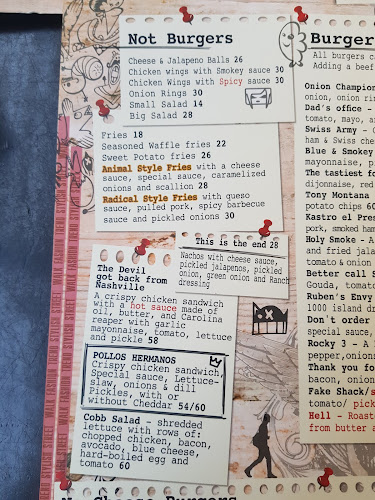 Not Burgers
Cheese & Jalapeno Balls 26
Chicken wings with Smokey sauce 30
Chicken Wings with Spicy sauce 30
Onion Rings 30
Small Salad 14
Big Salad 28
Fries 18
Seasoned Waffle fries 22
Sweet Potato fries 26
Animal Style Fries with a cheese
sauce, special sauce, caramelized
onions and scallion 28
Radical Style Fries with queso
sauce, pulled pork, spicy barbecue
sauce and pickled onions 30
This is the end 28
Nachos with cheese sauce,
pickled jalapenos, pickled
onion, green onion and Ranch
dressing
The Devil
got back from
Nashville
A crispy chicken sandwich
with a hot sauce made of
oil, butter, and Carolina
reaper with garlic
mayonnaise, tomato, lettuce
and pickle 58
POLLOS HERMANOS
Crispy chicken sandwich,
Special sauce, Lettuce-
slaw, onions & dill
Pickles, with or
without Cheddar 54/60
Cobb Salad - shredded
lettuce with rows of:
chopped chicken, bacon,
avocado, blue cheese,
hard-boiled egg and
tomato 60
Burger
All burgers c
Adding a beef
Onion Champion
onion, onion rin
Dad's office -
tomato, mayo, a
Swiss Army - G
ham & Swiss che
Blue & Smokey
mayonnaise, p
The tastiest fo
dijonnaise, red
Tony Montana
potato chips 60
Kastro el Pres
pork, smoked ham
Holy Smoke - A
and fried jalap
tomato & onion
Better call S
Gouda, tomato
Ruben's Envy
1000 island dr
Don't order
special sauce,
Rocky 3 - A
pepper, onions
Thank you fo
bacon, onion
Fake Shack/s
tomato/ pick
Hell - Roast
from butter a